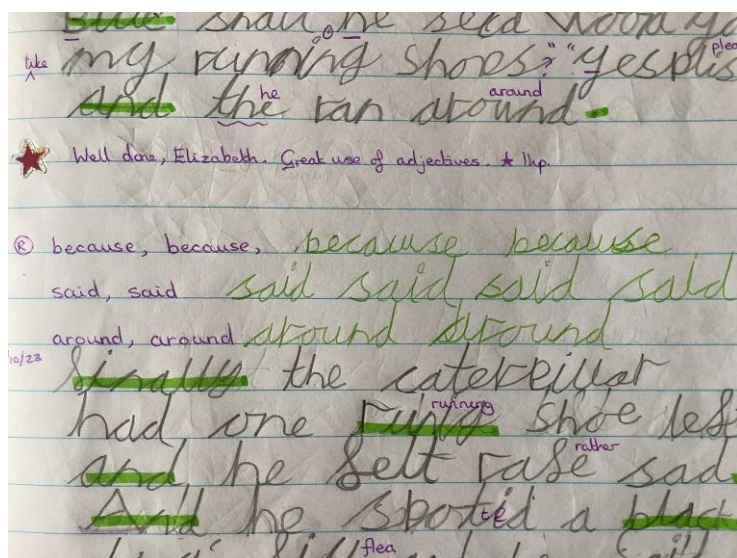 Blue shall he seed wood yo
take my running shoes? " "yes plis plea
And the he ran around around.
Well done, Elizabeth. Great use of adjectives. ★ 1hp.
Ⓡ because, because, because because
said, said said said said said
around, around around around
10/23 Finally the caterpillar
had one runig running shoe lef
and he felt rafe rather sad.
And he spotid te a black
flea